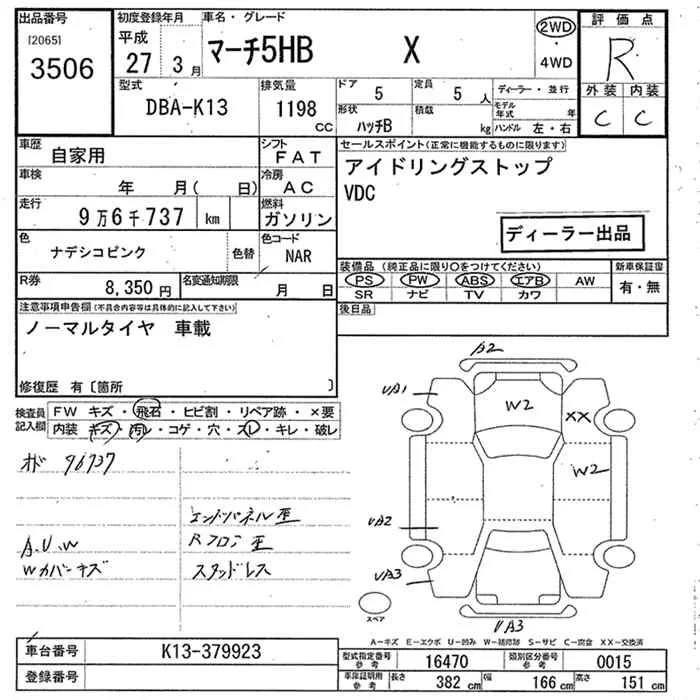 出品番号 初度登録年月 車名・グレード 評価点
[2065]
3506
平成
27 3月
マーチ5HB X
2WD
・
4WD
R
型式 排気量 ドア 5 定員 5 人 ディーラー・並行 外装 内装
DBA-K13 1198 CC
形状 ハッチB 積載 kg
モデル年式 年
ハンドル 左・右
C C
車歴 自家用
シフト FAT
セールスポイント(正常に機能するものに限ります)
アイドリングストップ
VDC
車検 年 月( 日)
冷房 AC
走行 9万6千737 km
燃料 ガソリン
ディーラー出品
色 ナデシコピンク 色替
色コード NAR
装備品(純正品に限り○をつけてください) 新車保証書
PS PW ABS エアB AW
SR ナビ TV カワ
有・無
R券 8,350円
名変通知期限 月 日
後日品
注意事項申告欄(不具合内容等は具体的に記入して下さい)
ノーマルタイヤ 車載
修復歴 有〔箇所 〕
検査員記入欄
FW キズ・飛石・ヒビ割・リペア跡・×要
内装 キズ・汚レ・コゲ・穴・スレ・キレ・破レ
オド 96737
エンドパネル歪
A.U.W Rフロア歪
Wカバーキズ スタッドレス
A2
UA1
W2
XX
W2
UA2
UA3
UA3
スペア
A-キズ E-エクボ U-凹み W-補修跡 S-サビ C-腐食 XX-交換済
車台番号 K13-379923
登録番号
型式指定番号 参考 16470 類別区分番号 参考 0015
車庫証明用 参考 長さ 382cm 幅 166cm 高さ 151cm